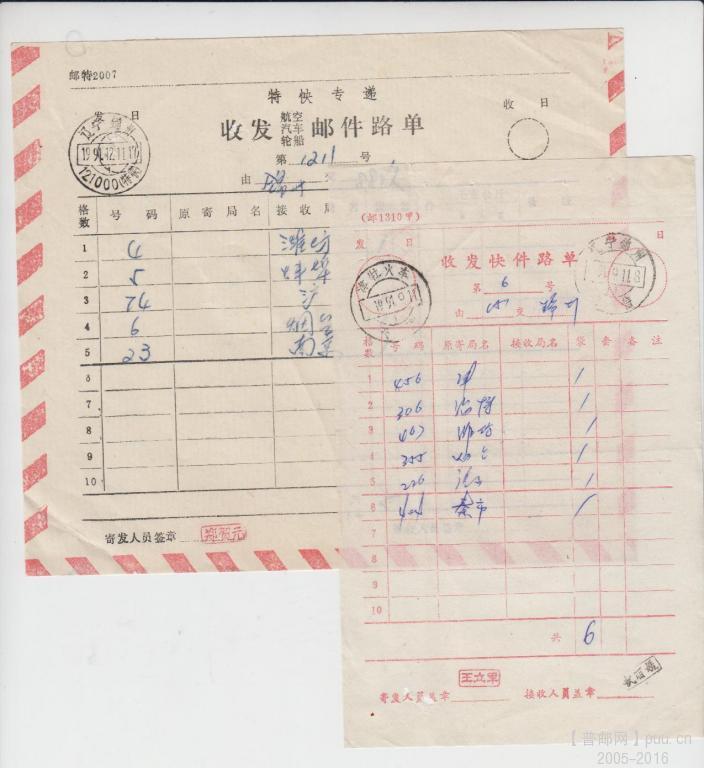 邮特2007
特快专递
发 日
收 日
收发 航空 汽车 轮船 邮件路单
辽宁锦州
121000
第 1211 号
由
格数 号码 原寄局名 接收局
1 4 潍坊
2 5 蚌埠
3 74 沪
4 6 烟台
5 23 南京
6
7
8
9
10
寄发人员签章
(邮1310甲)
发 日
日
收发快件路单
第 6 号
由 交 锦州
格数 号码 原寄局名 接收局名 袋 套 备注
1 456 1
2 306 淄博 1
3 467 潍坊 1
4 355 烟台 1
5 226 1
6 424 秦市 1
7
8
9
10
共 6
王立军
寄发人员盖章 接收人员盖章
【普邮网】puu.cn
2005-2016